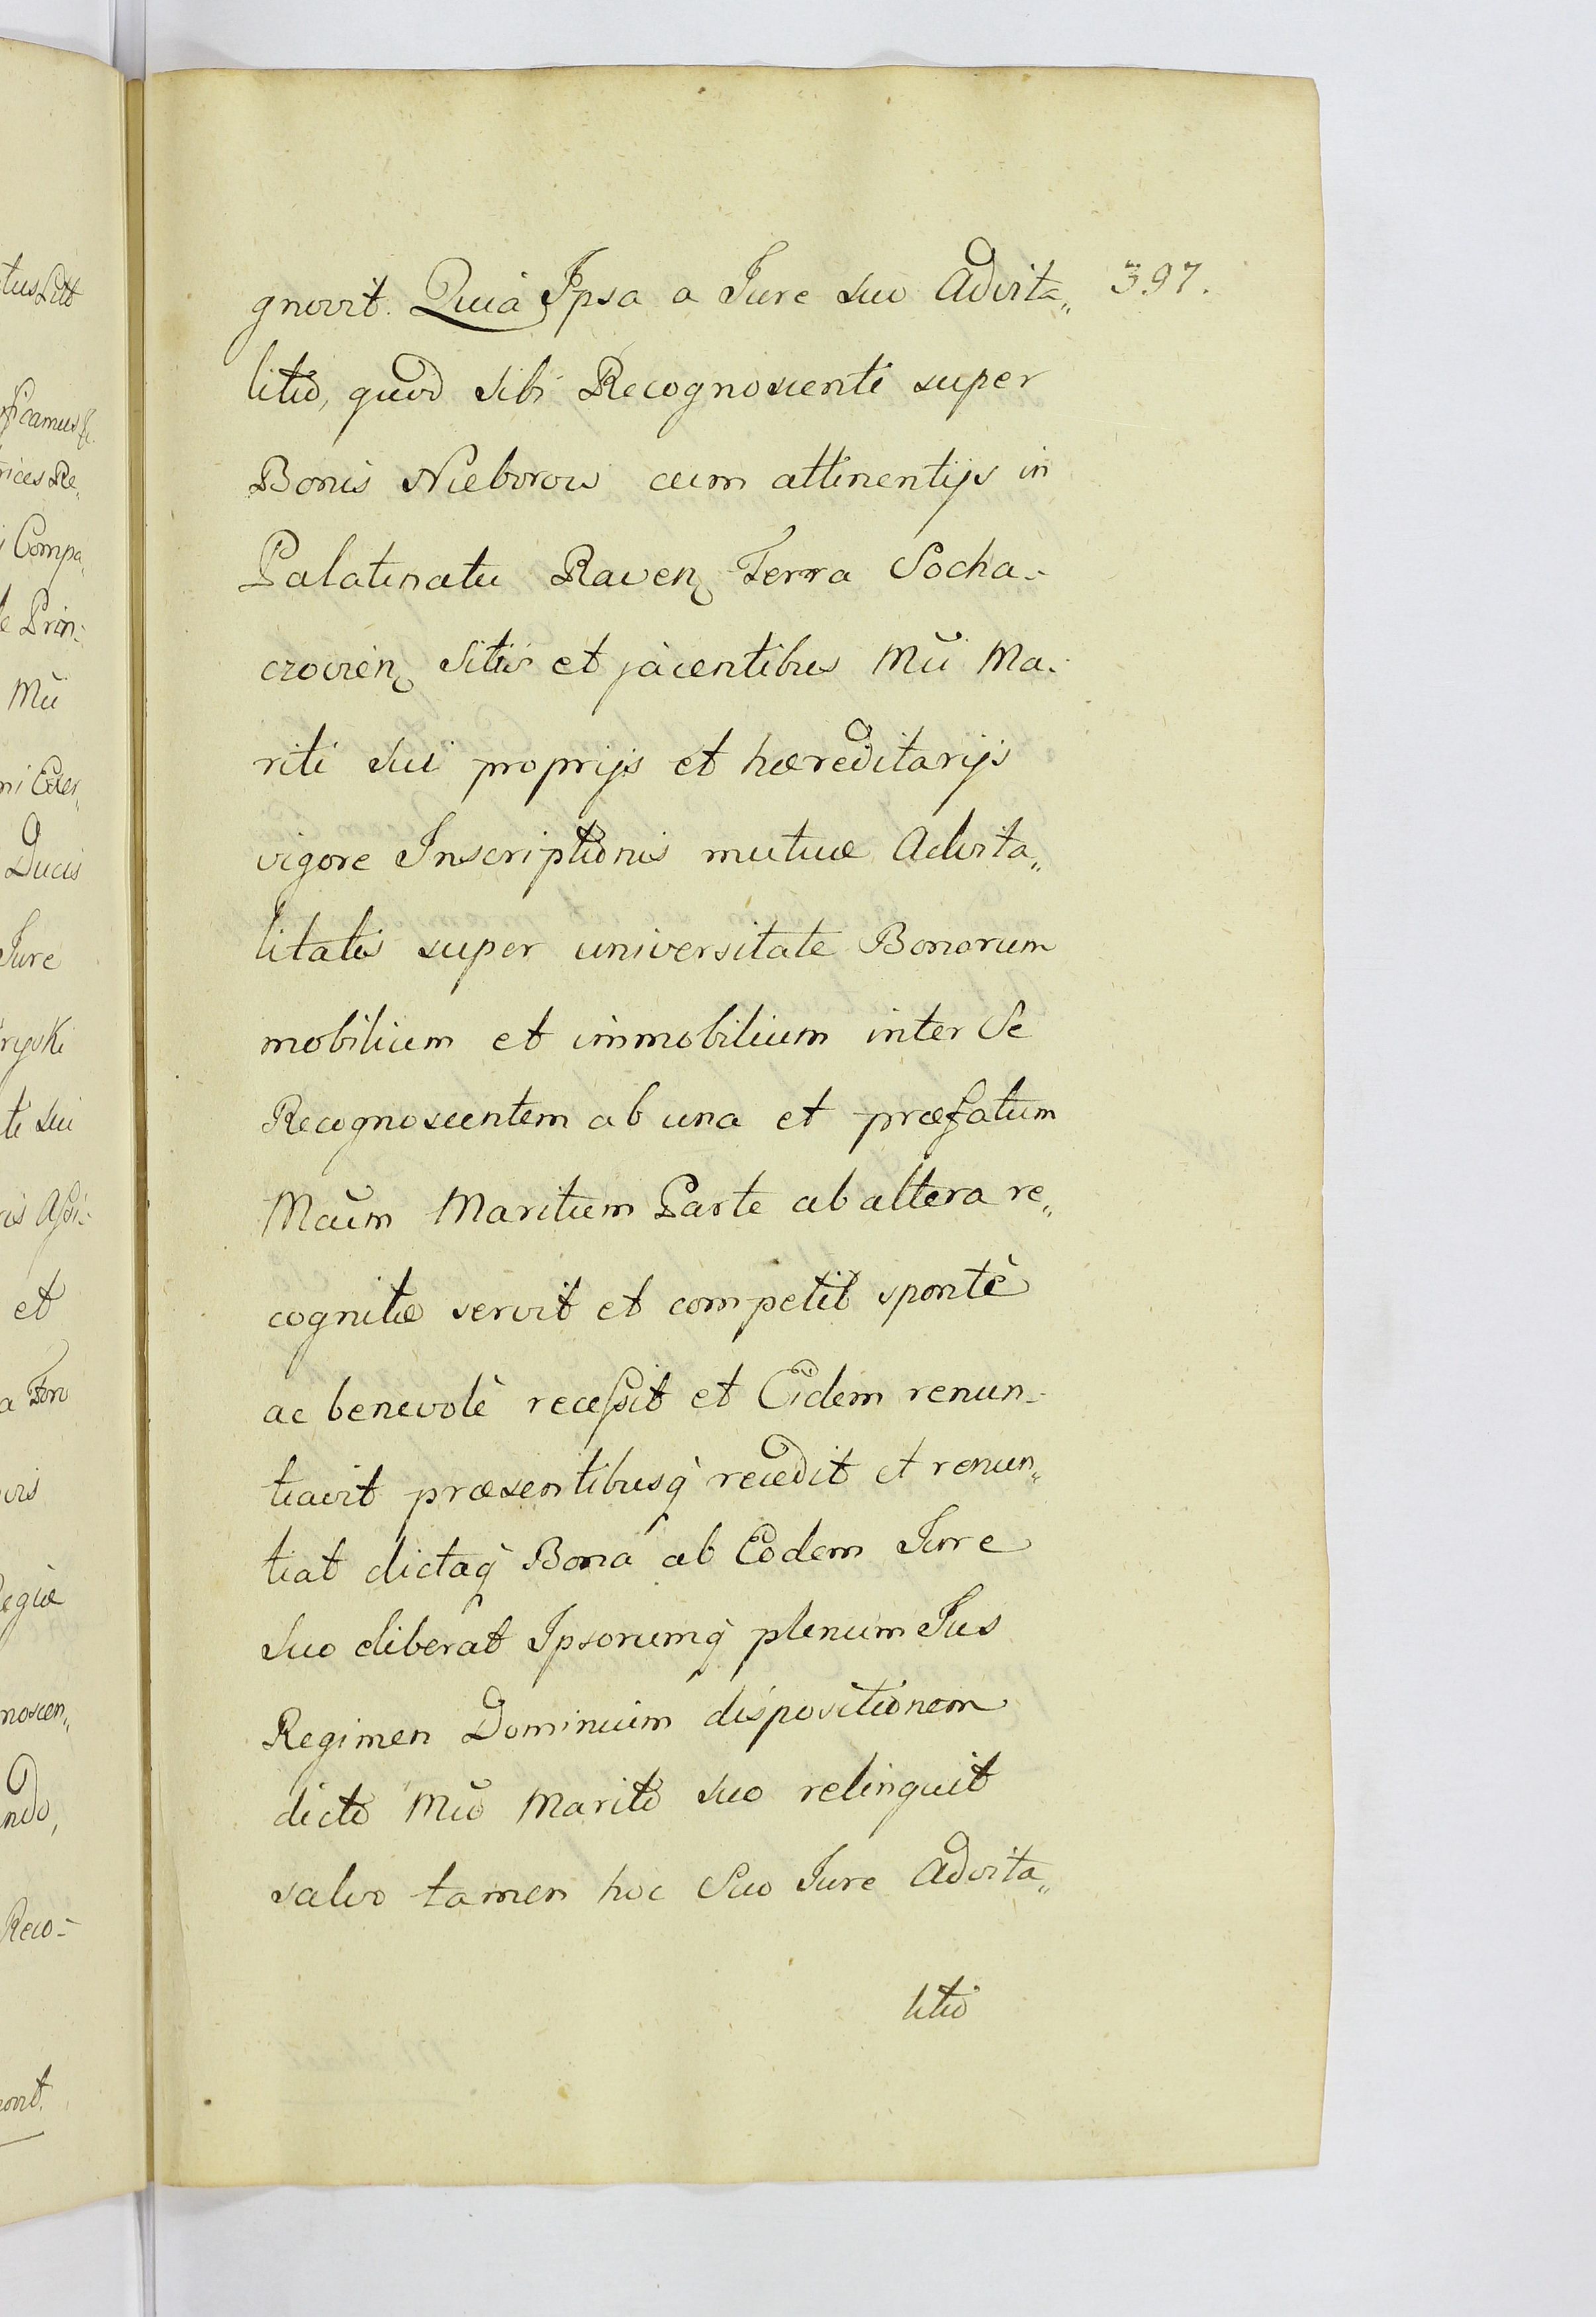 397.
gnovit. Quià Ipsa a Jure suo Advita„
litio, quod sibi Recognoscenti super
Bonis Nieborow cum attinentijs in
Palatinatu Raven Terra Socha-
czovien sitis et jacentibus Mci Ma-
riti sui proprijs et hæreditarijs
vigore Inscriptionis mutuæ Advita„
litatis super universitate Bonorum
mobilium et immobilium inter Se
Recognoscentem ab una et præfatum
Mcum Maritum Parte ab altera re„
cognitæ servit et competit spontè
ac benevolè recessit et Eidem renun-
tiavit præsentibusq́ recedit et renun„
tiat dictaq́ Bona ab Eodem Jure
suo liberat Ipsorumq́ plenum Jus
Regimen Dominium dispositionem
dicto Mco Marito suo relinquit
salvo tamen hoc Suo Jure Advita„
litio